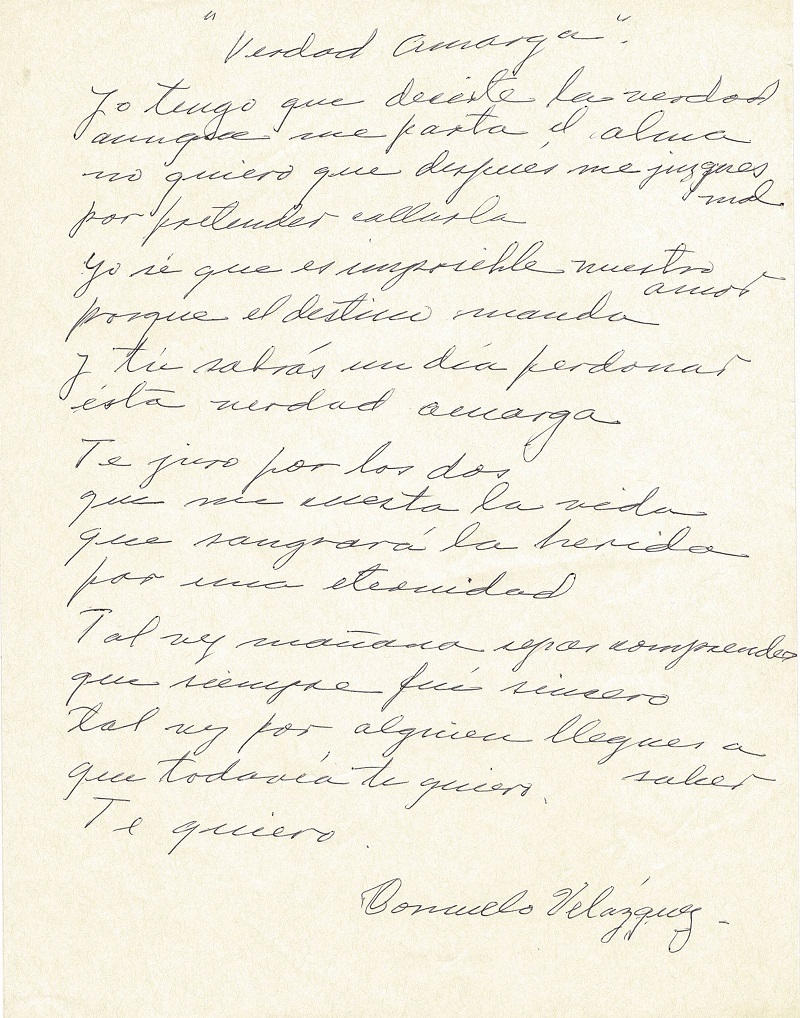 "Verdad amarga".
Yo tengo que decirte la verdad
aunque me parta el alma
no quiero que después me juzgues
mal
por pretender callarla
Yo sé que es imposible nuestro
amor
porque el destino manda
y tú sabrás un día perdonar
ésta verdad amarga
Te juro por los dos
que me cuesta la vida
que sangrará la herida
por una eternidad
Tal vez mañana sepas comprender
que siempre fuí sincero
tal vez por alguien llegues a
saber
que todavía te quiero.
Te quiero.
Consuelo Velázquez-